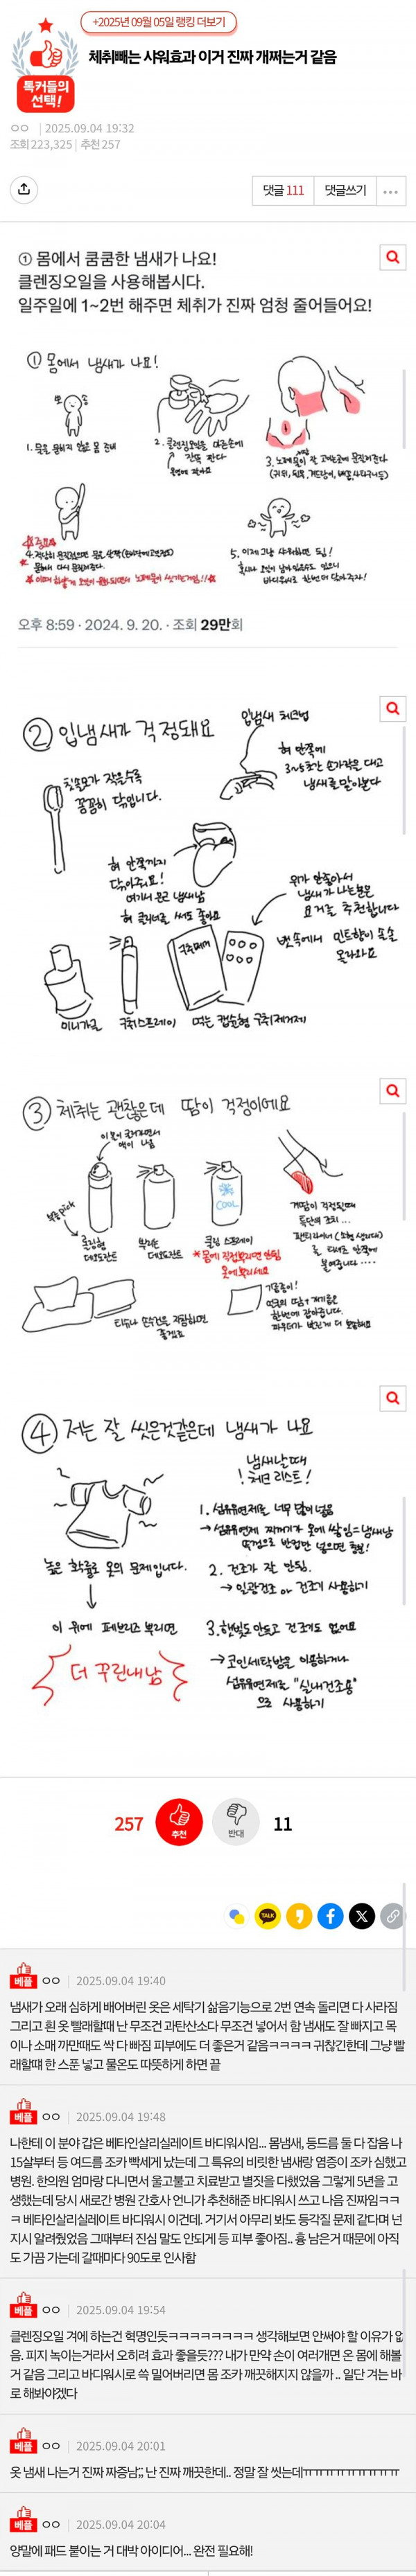 +2025년 09월 05일 랭킹 더보기
톡커들의
선택!
체취빼는 샤워효과 이거 진짜 개쩌는거 같음
ㅇㅇ | 2025.09.04 19:32
조회 223,325 | 추천 257
댓글 111
댓글쓰기
① 몸에서 쿰쿰한 냄새가 나요!
클렌징오일을 사용해봅시다.
일주일에 1~2번 해주면 체취가 진짜 엄청 줄어들어요!
① 몸에서 냄새가 나요!
오후 8:59 · 2024. 9. 20. · 조회 29만회
② 입냄새가 걱정돼요
입냄새 체크법
혀 안쪽에
3~5초간 손가락을 대고
냄새를 맡아본다
칫솔모가 작을수록
꼼꼼히 닦입니다.
혀 안쪽까지
닦아주요!
여기서 온갖 냄새남
혀 클리너를 써도 좋아요
위가 안좋아서
냄새가 나는분은
요거를 추천합니다
뱃속에서 민트향이 솔솔
올라와요
미니가글
구취스프레이
먹는 캡슐형 구취제거제
③ 체취는 괜찮은데 땀이 걱정이에요
롤링형
데오도란트
COOL
쿨링 스프레이
*몸에 직접뿌리면 안됨
옷에뿌리세요
티슈나 손수건을 지참하면
좋겠죠
④ 저는 잘 씻은것같은데 냄새가 나요
냄새날때
! 체크리스트!
1. 섬유유연제를 너무 많이넣음
→섬유유연제 찌꺼기가 옷에 쌓임=냄새남
뚜껑으로 반컵만 넣으면 충분!
높은 확률로 옷의 문제입니다.
2. 건조가 잘 안됨.
→ 일광건조 or 건조기 사용하기
이 위에 페브리즈 뿌리면
더 꾸린내남
3. 햇빛도 안들고 건조기도 없어요
→ 코인세탁방을 이용하거나
섬유유연제를 "실내건조용"
으로 사용하기
257
추천
반대
11
TALK
베플 ㅇㅇ | 2025.09.04 19:40
냄새가 오래 심하게 배어버린 옷은 세탁기 삶음기능으로 2번 연속 돌리면 다 사라짐
그리고 흰 옷 빨래할때 난 무조건 과탄산소다 무조건 넣어서 함 냄새도 잘 빠지고 목
이나 소매 까만때도 싹 다 빠짐 피부에도 더 좋은거 같음ㅋㅋㅋㅋ 귀찮긴한데 그냥 빨
래할떄 한 스푼 넣고 물온도 따뜻하게 하면 끝
베플 ㅇㅇ | 2025.09.04 19:48
나한테 이 분야 갑은 베타인살리실레이트 바디워시임... 몸냄새, 등드름 둘 다 잡음 나
15살부터 등 여드름 조카 빡세게 났는데 그 특유의 비릿한 냄새랑 염증이 조카 심했고
병원. 한의원 엄마랑 다니면서 울고불고 치료받고 별짓을 다했었음 그렇게 5년을 고
생했는데 당시 새로간 병원 간호사 언니가 추천해준 바디워시 쓰고 나음 진짜임ㅋㅋ
ㅋ 베타인살리실레이트 바디워시 이건데. 거기서 아무리 봐도 등각질 문제 같다며 넌
지시 알려줬었음 그때부터 진심 말도 안되게 등 피부 좋아짐.. 흉 남은거 때문에 아직
도 가끔 가는데 갈때마다 90도로 인사함
베플 ㅇㅇ | 2025.09.04 19:54
클렌징오일 겨에 하는건 혁명인듯ㅋㅋㅋㅋㅋㅋㅋㅋ 생각해보면 안써야 할 이유가 없
음. 피지 녹이는거라서 오히려 효과 좋을듯??? 내가 만약 손이 여러개면 온 몸에 해볼
거 같음 그리고 바디워시로 쓱 밀어버리면 몸 조카 깨끗해지지 않을까 .. 일단 겨는 바
로 해봐야겠다
베플 ㅇㅇ | 2025.09.04 20:01
옷 냄새 나는거 진짜 짜증남;; 난 진짜 깨끗한데.. 정말 잘 씻는데ㅠㅠㅠㅠㅠㅠㅠㅠㅠ
베플 ㅇㅇ | 2025.09.04 20:04
양말에 패드 붙이는 거 대박 아이디어... 완전 필요해!